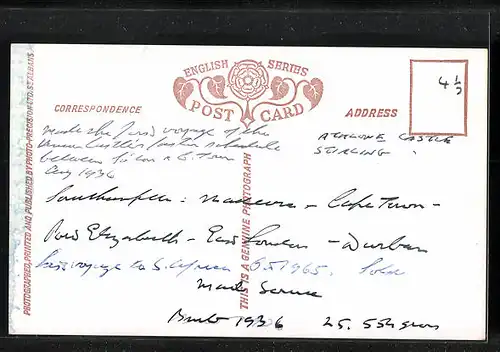 ENGLISH SERIES
POST CARD
CORRESPONDENCE
ADDRESS
4 1/2
made the first voyage of the
Union Castle's faster schedule
between S'ton & C. Town
Aug 1936
ATHLONE CASTLE
STIRLING
Southampton - Madeira - Cape Town -
Port Elizabeth - East London - Durban
Last voyage to S. Africa 1965. Sold
Built 1936 25,554 gross
PHOTOGRAPHED, PRINTED AND PUBLISHED BY PHOTO-PRECISION LTD. ST. ALBANS
THIS IS A GENUINE PHOTOGRAPH